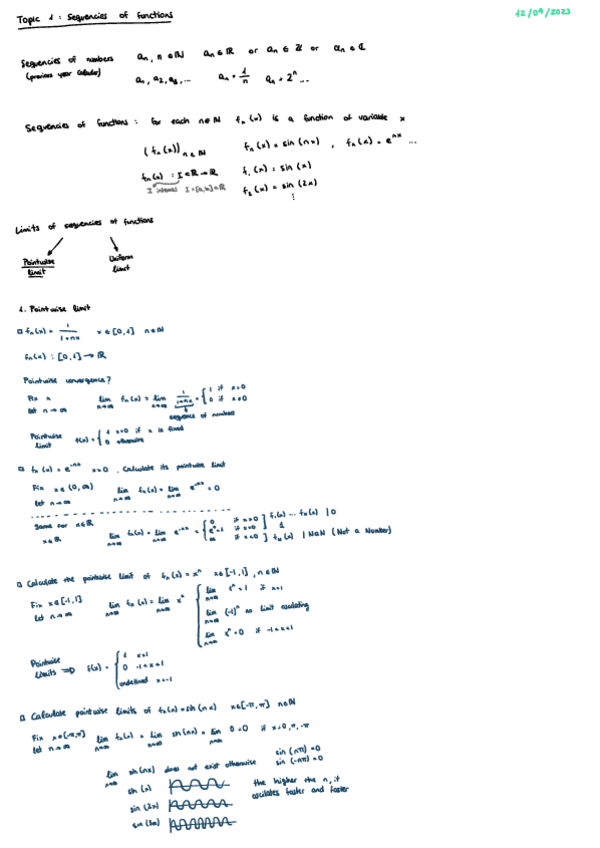 Topic 1: Sequencies of functions
12/09/2023
Sequencies of numbers aₙ, n ∈ ℕ aₙ ∈ ℝ or aₙ ∈ ℤ or aₙ ∈ ℂ
(previous year calculus) a₁, a₂, a₃, ... aₙ = 1/n aₙ = 2ⁿ ...
Sequencies of functions: for each n∈ℕ fₙ(x) is a function of variable x
(fₙ(x))ₙ∈ℕ fₙ(x) = sin(nx), fₙ(x) = eⁿˣ ...
fₙ(x) : I ∈ ℝ → ℝ f₁(x) = sin(x)
I interval I = [a,b] ∈ ℝ f₂(x) = sin(2x)
⋮
Limits of sequencies of functions
Pointwise limit Uniform limit
1. Pointwise limit
fₙ(x) = 1/(1+nx) x ∈ [0,1] n∈ℕ
fₙ(x) : [0,1] → ℝ
Pointwise convergence?
Fix x lim n→∞ fₙ(x) = lim n→∞ 1/(1+nx) = { 1 if x=0
let n→∞ 0 if x≠0
sequence of numbers
Pointwise limit f(x) = { 1 x=0 if x is fixed
0 otherwise
fₙ(x) = e⁻ⁿˣ x>0. Calculate its pointwise limit
Fix x∈(0,∞) lim n→∞ fₙ(x) = lim n→∞ e⁻ⁿˣ = 0
let n→∞
Same for x∈ℝ
x∈ℝ lim n→∞ fₙ(x) = lim n→∞ e⁻ⁿˣ = { 0 if x>0 ] f₁(x) ... fₙ(x) | 0
e⁰=1 if x=0 ] 1
∞ if x<0 ] fₙ(x) | NaN (Not a Number)
Calculate the pointwise limit of fₙ(x) = xⁿ x∈[-1,1], n∈ℕ
Fix x∈[-1,1] lim n→∞ fₙ(x) = lim n→∞ xⁿ { lim n→∞ 1ⁿ = 1 if x=1
let n→∞ lim n→∞ (-1)ⁿ no limit oscilating
lim n→∞ xⁿ = 0 if -1<x<1
Pointwise Limits ⟹ f(x) = { 1 x=1
0 -1<x<1
undefined x=-1
Calculate pointwise limits of fₙ(x) = sin(nx) x∈[-π,π] n∈ℕ
Fix x∈[-π,π] lim n→∞ fₙ(x) = lim n→∞ sin(nx) = lim n→∞ 0 = 0 if x=0,π,-π
let n→∞
lim n→∞ sin(nx) does not exist otherwise sin(nπ)=0
sin(-nπ)=0
sin(x) the higher the n, it
sin(2x) oscilates faster and faster
sin(3x)